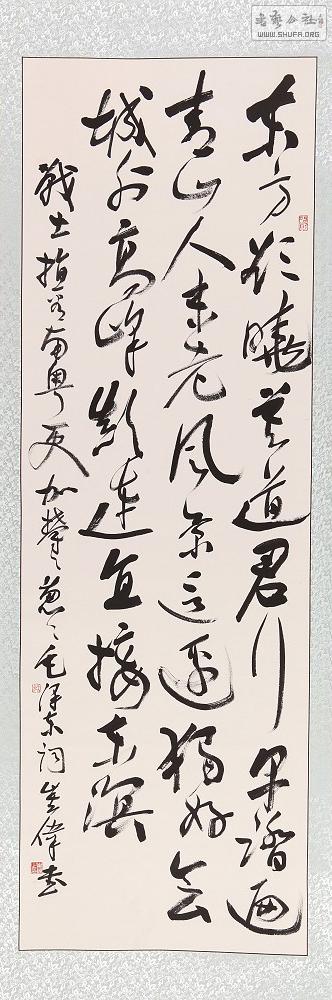 书艺公社
WWW.SHUFA.ORG
东方欲曉莫道君行早踏遍
青山人未老风景这边獨好会
城外高峰颠连直接东溟
戰士指看南粤更加鬱々葱々毛泽东词偉书